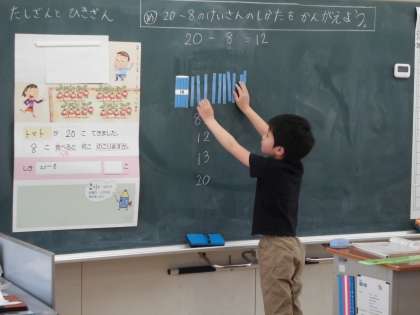 たしざんと ひきざん
め 20-8のけいさんのしかたを かんがえよう。
20-8=12
トマトが 20こ できました。
8こ 食べると 何こ のこりますか。
しき 20-8 こ
8
12
13
20